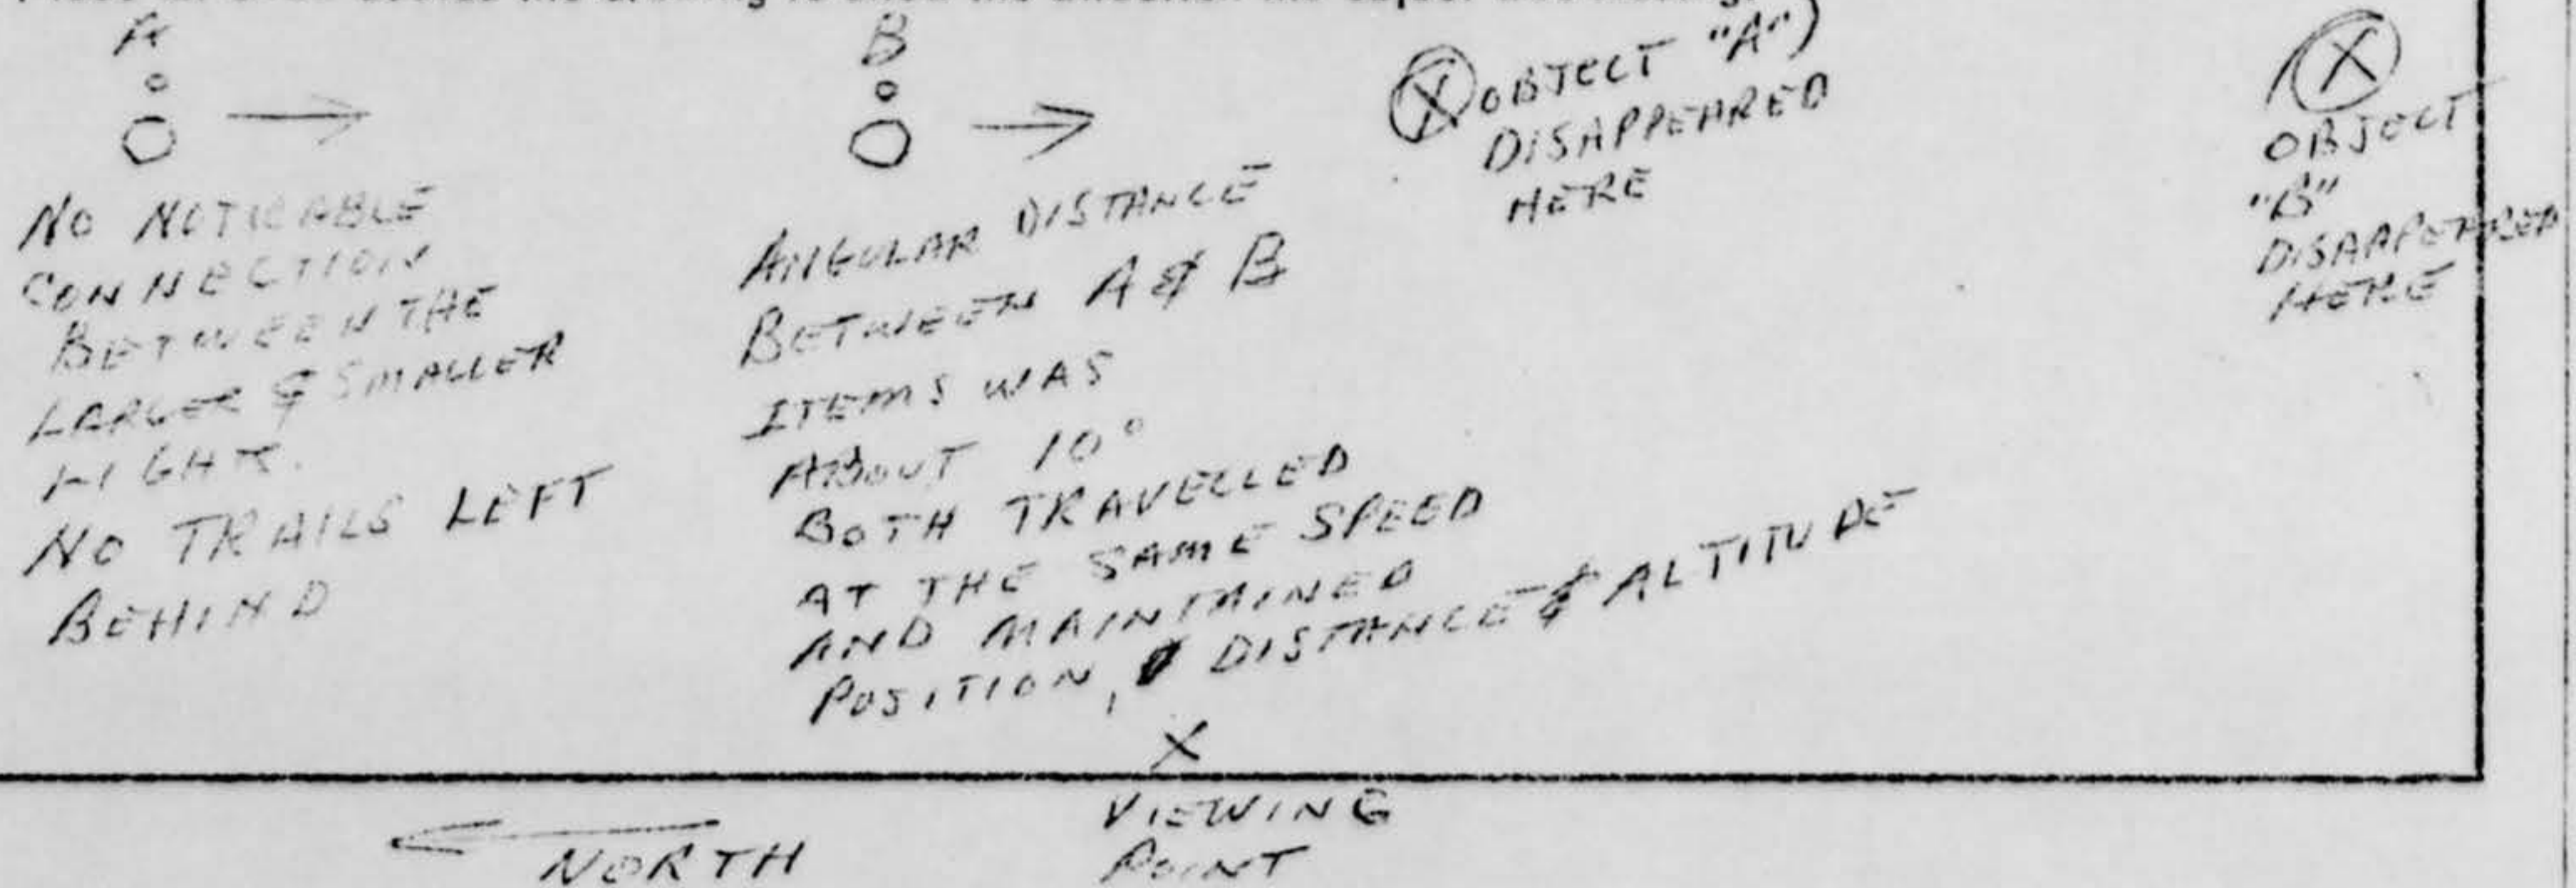 A
NO NOTICABLE
CONNECTION
BETWEEN THE
LARGER & SMALLER
LIGHT.
NO TRAILS LEFT
BEHIND
B
ANGULAR DISTANCE
BETWEEN A & B
ITEMS WAS
ABOUT 10°
BOTH TRAVELLED
AT THE SAME SPEED
AND MAINTAINED
POSITION, DISTANCE & ALTITUDE
X OBJECT "A")
DISAPPEARED
HERE
X
OBJECT
"B"
DISAPPEARED
HERE
X
VIEWING
POINT
NORTH